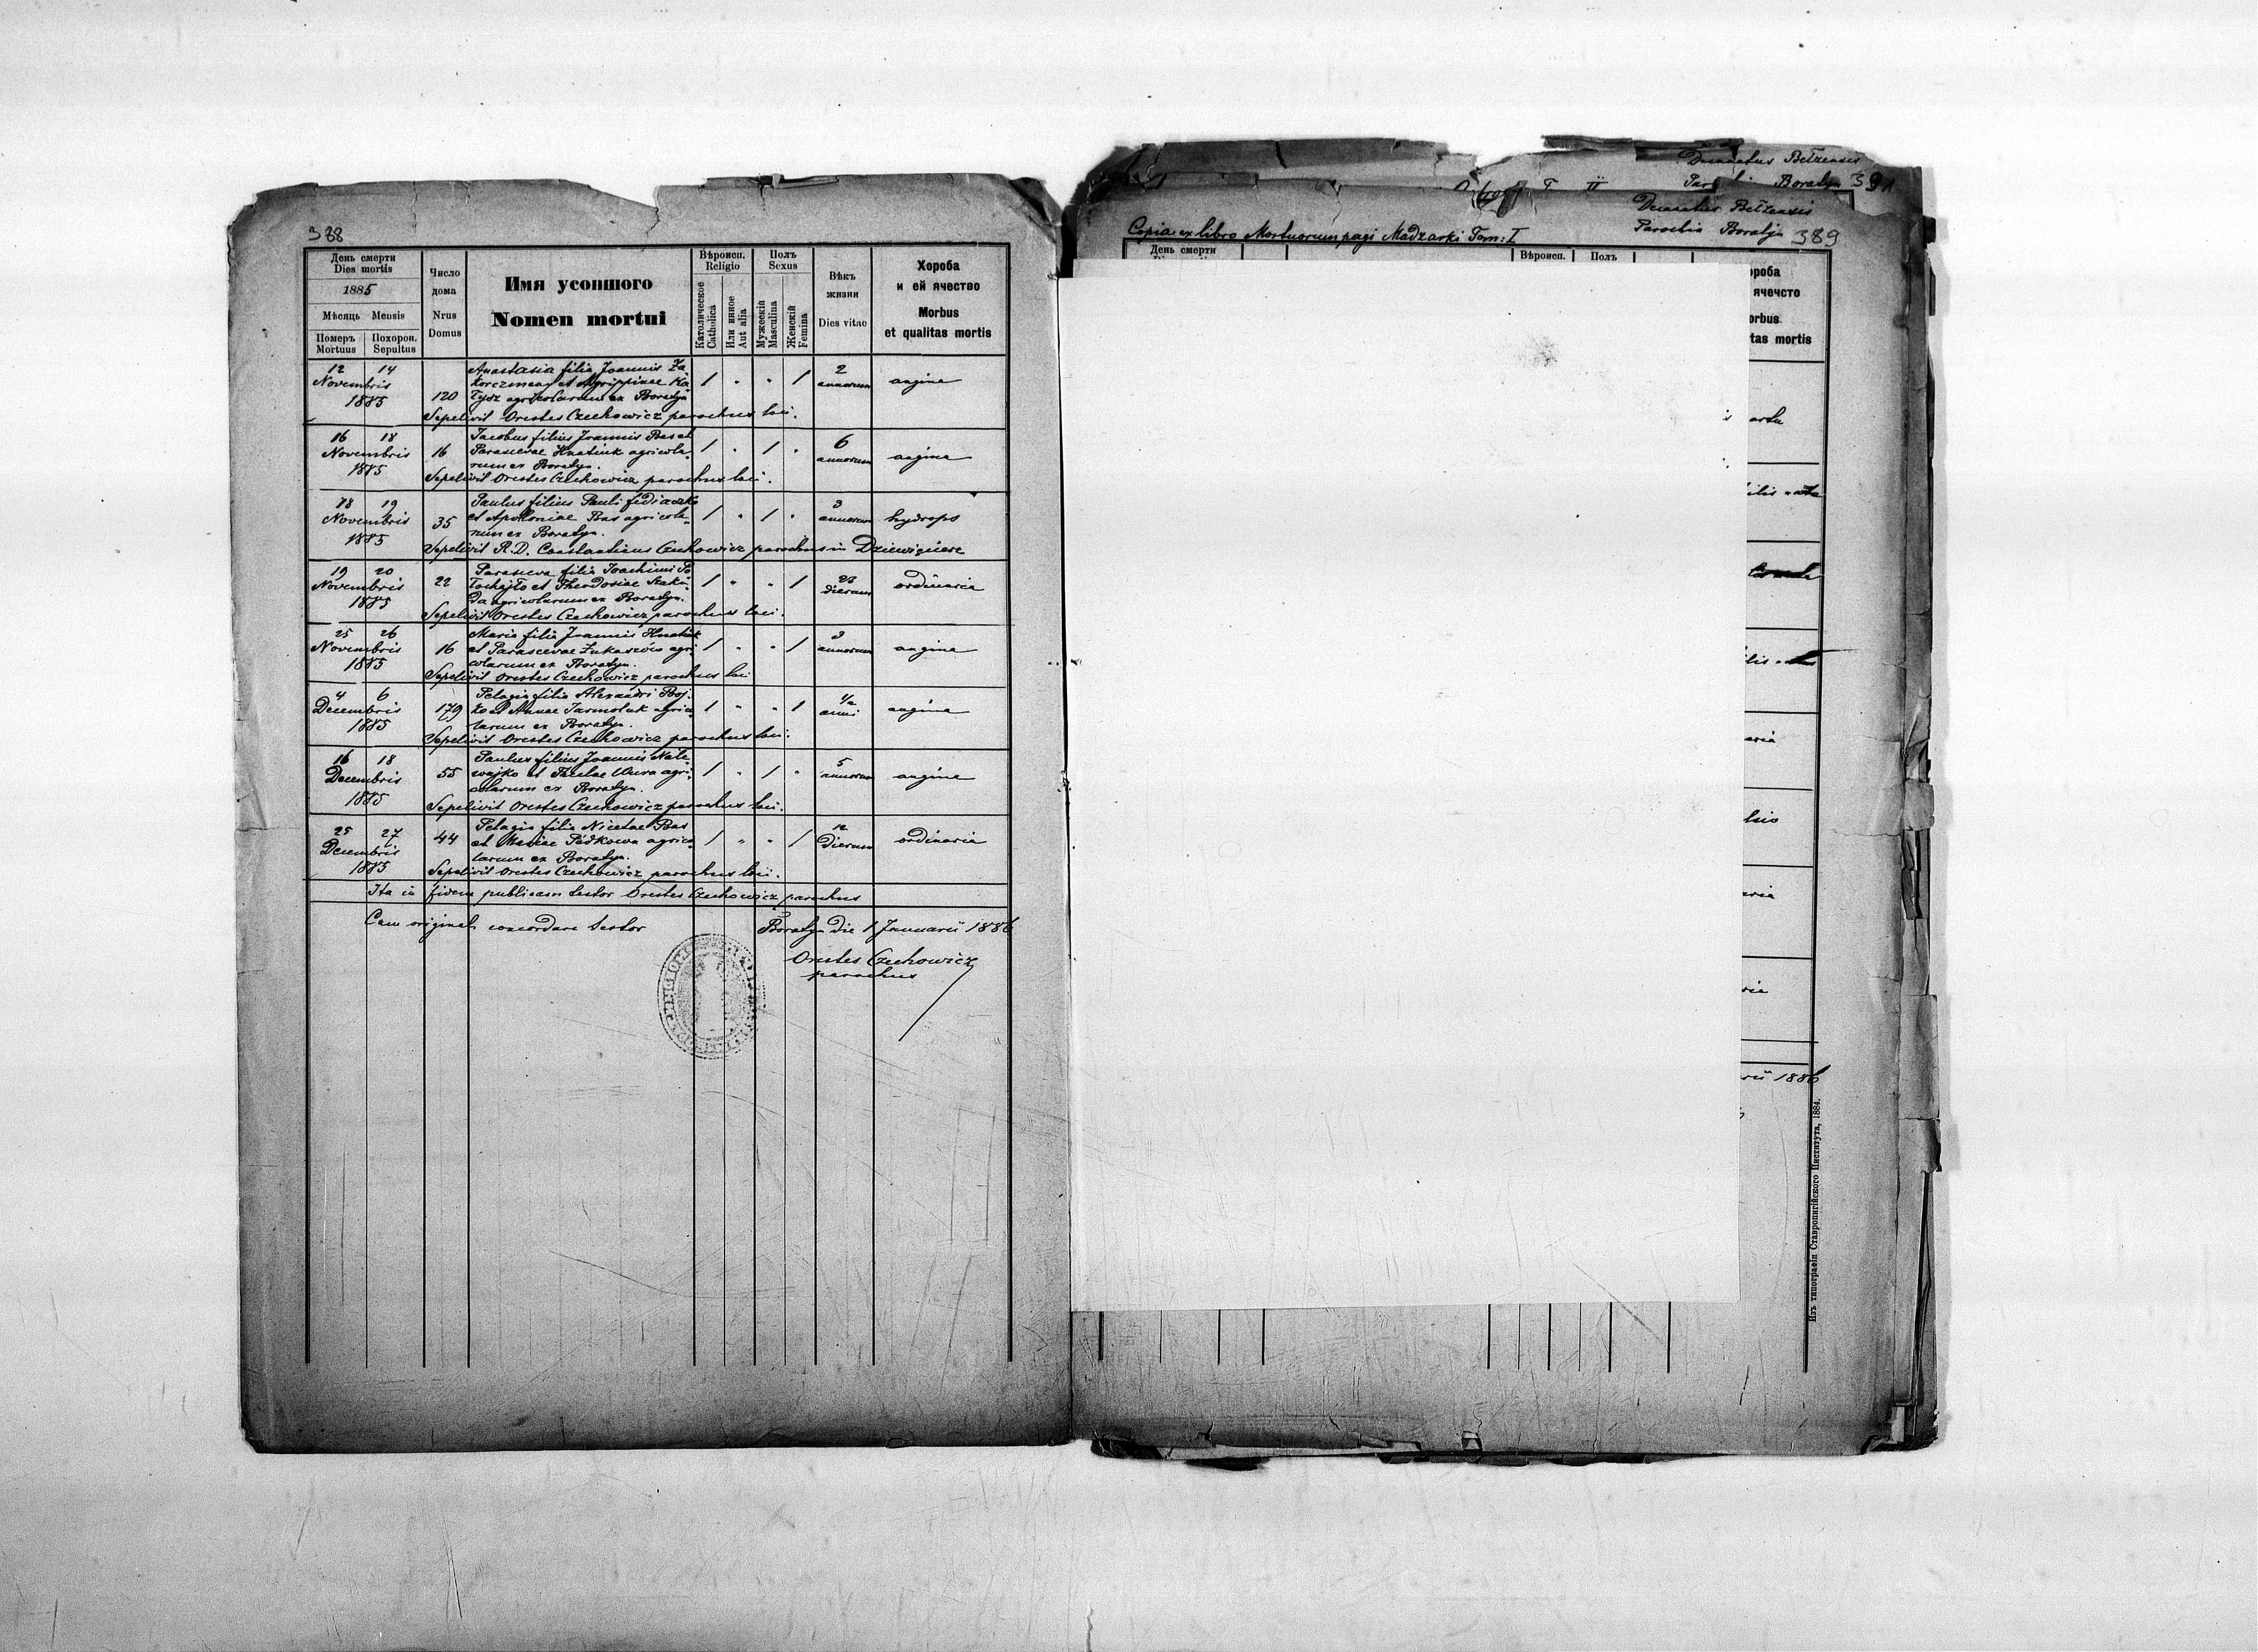 388
День смерти
Dies mortis
1885
Мѣсяць Mensis
Померъ Похорон.
Mortuus Sepultus
Число
дома
Nrus
Domus
Имя усопшого
Nomen mortui
Вѣроисп.
Religio
Католическое
Catholica
Или инное
Aut alia
Полъ
Sexus
Мужескій
Masculina
Женскій
Femina
Вѣкъ
жизни
Dies vitae
Хороба
и ей ячество
Morbus
et qualitas mortis
12 14
Novembris
1885
120
Anastasia filia Joannis Za-
korczmeny et Agrippinae Ka-
agricolarum ex Boratyn
1 " " 1
2
annorum
angina
Sepelivit Orestes Czechowicz parochus loci.
16 18
Novembris
1885
16
Jacobus filius Joannis Bas et
Parascevae Hnatiuk agricola-
rum ex Boratyn.
1 " 1 "
6
annorum
angina
Sepelivit Orestes Czechowicz parochus loci.
18 19
Novembris
1885
35
Paulus filius Pauli Fediaczko
et Apoloniae Bas agricola-
rum ex Boratyn.
1 " 1 "
3
annorum
hydrops
Sepelivit R.D. Constantinus Czechowicz parochus in
19 20
Novembris
1885
22
Parasceva filia Joachimi
et Theodosiae
agricolarum ex Boratyn.
1 " " 1
23
dierum
ordinaria
Sepelivit Orestes Czechowicz parochus loci.
25 26
Novembris
1885
16
Maria filia Joannis Hnatiuk
et Parascevae Łukaszwie agri-
colarum ex Boratyn.
1 " " 1
3
annorum
angina
Sepelivit Orestes Czechowicz parochus loci
4 6
Decembris
1885
179
Pelagia filia Alexandri Boj-
ko et Annae Jarmoluk agrico-
larum ex Boratyn.
1 " " 1
anni
angina
Sepelivit Orestes Czechowicz parochus loci.
16 18
Decembris
1885
55
Paulus filius Joannis Nale-
wajko et Theclae Wura agri-
colarum ex Boratyn.
1 " 1 "
5
annorum
angina
Sepelivit Orestes Czechowicz parochus loci.
25 27
Decembris
1885
44
Pelagia filia Nicetae Bas
et Mariae Pidkowa agrico-
larum ex Boratyn.
1 " " 1
12
dierum
ordinaria
Sepelivit Orestes Czechowicz parochus loci.
Ita in fidem publicam testor Orestes Czechowicz parochus
Cum originali concordare testor
Boratyn die 1 Januarii 1886
Orestes Czechowicz
parochus
Decanatus Bełzensis
Boratyn 391
Decanatus Bełzensis
Parochia Boratyn 389
Copia ex libro Mortuorum pagi Madzarki Tom: I
День смерти
Вѣроисп.
Полъ
ороба
ячечсто
orbus
tas mortis
aria
aria
ria
rii 1886
Изъ типографіи Ставропигійского Института, 1884.